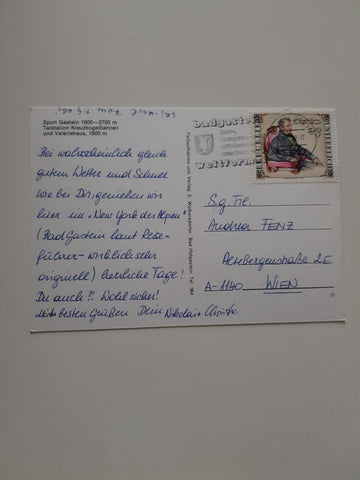 Sport Gastein 1600–2700 m
Talstation Kreuzkogelbahnen
und Valeriehaus, 1600 m
Bei wahrscheinlich gleich
gutem Wetter und Schnee
wie bei Dir, genießen wir
hier in „New York der Alpen"
(Bad Gastein laut Reise-
führer – wirklich sehr
originell) herrliche Tage!
Du auch?! Wohl sicher!
Mit besten Grüßen Dein Nikolai + Christa
Farbaufnahme und Verlag: E. Wolkersdorfer, Bad Hofgastein, Tel. 364
badgastein
weltform
S.g. Frl.
Andrea FENZ
2E
A-1140 WIEN